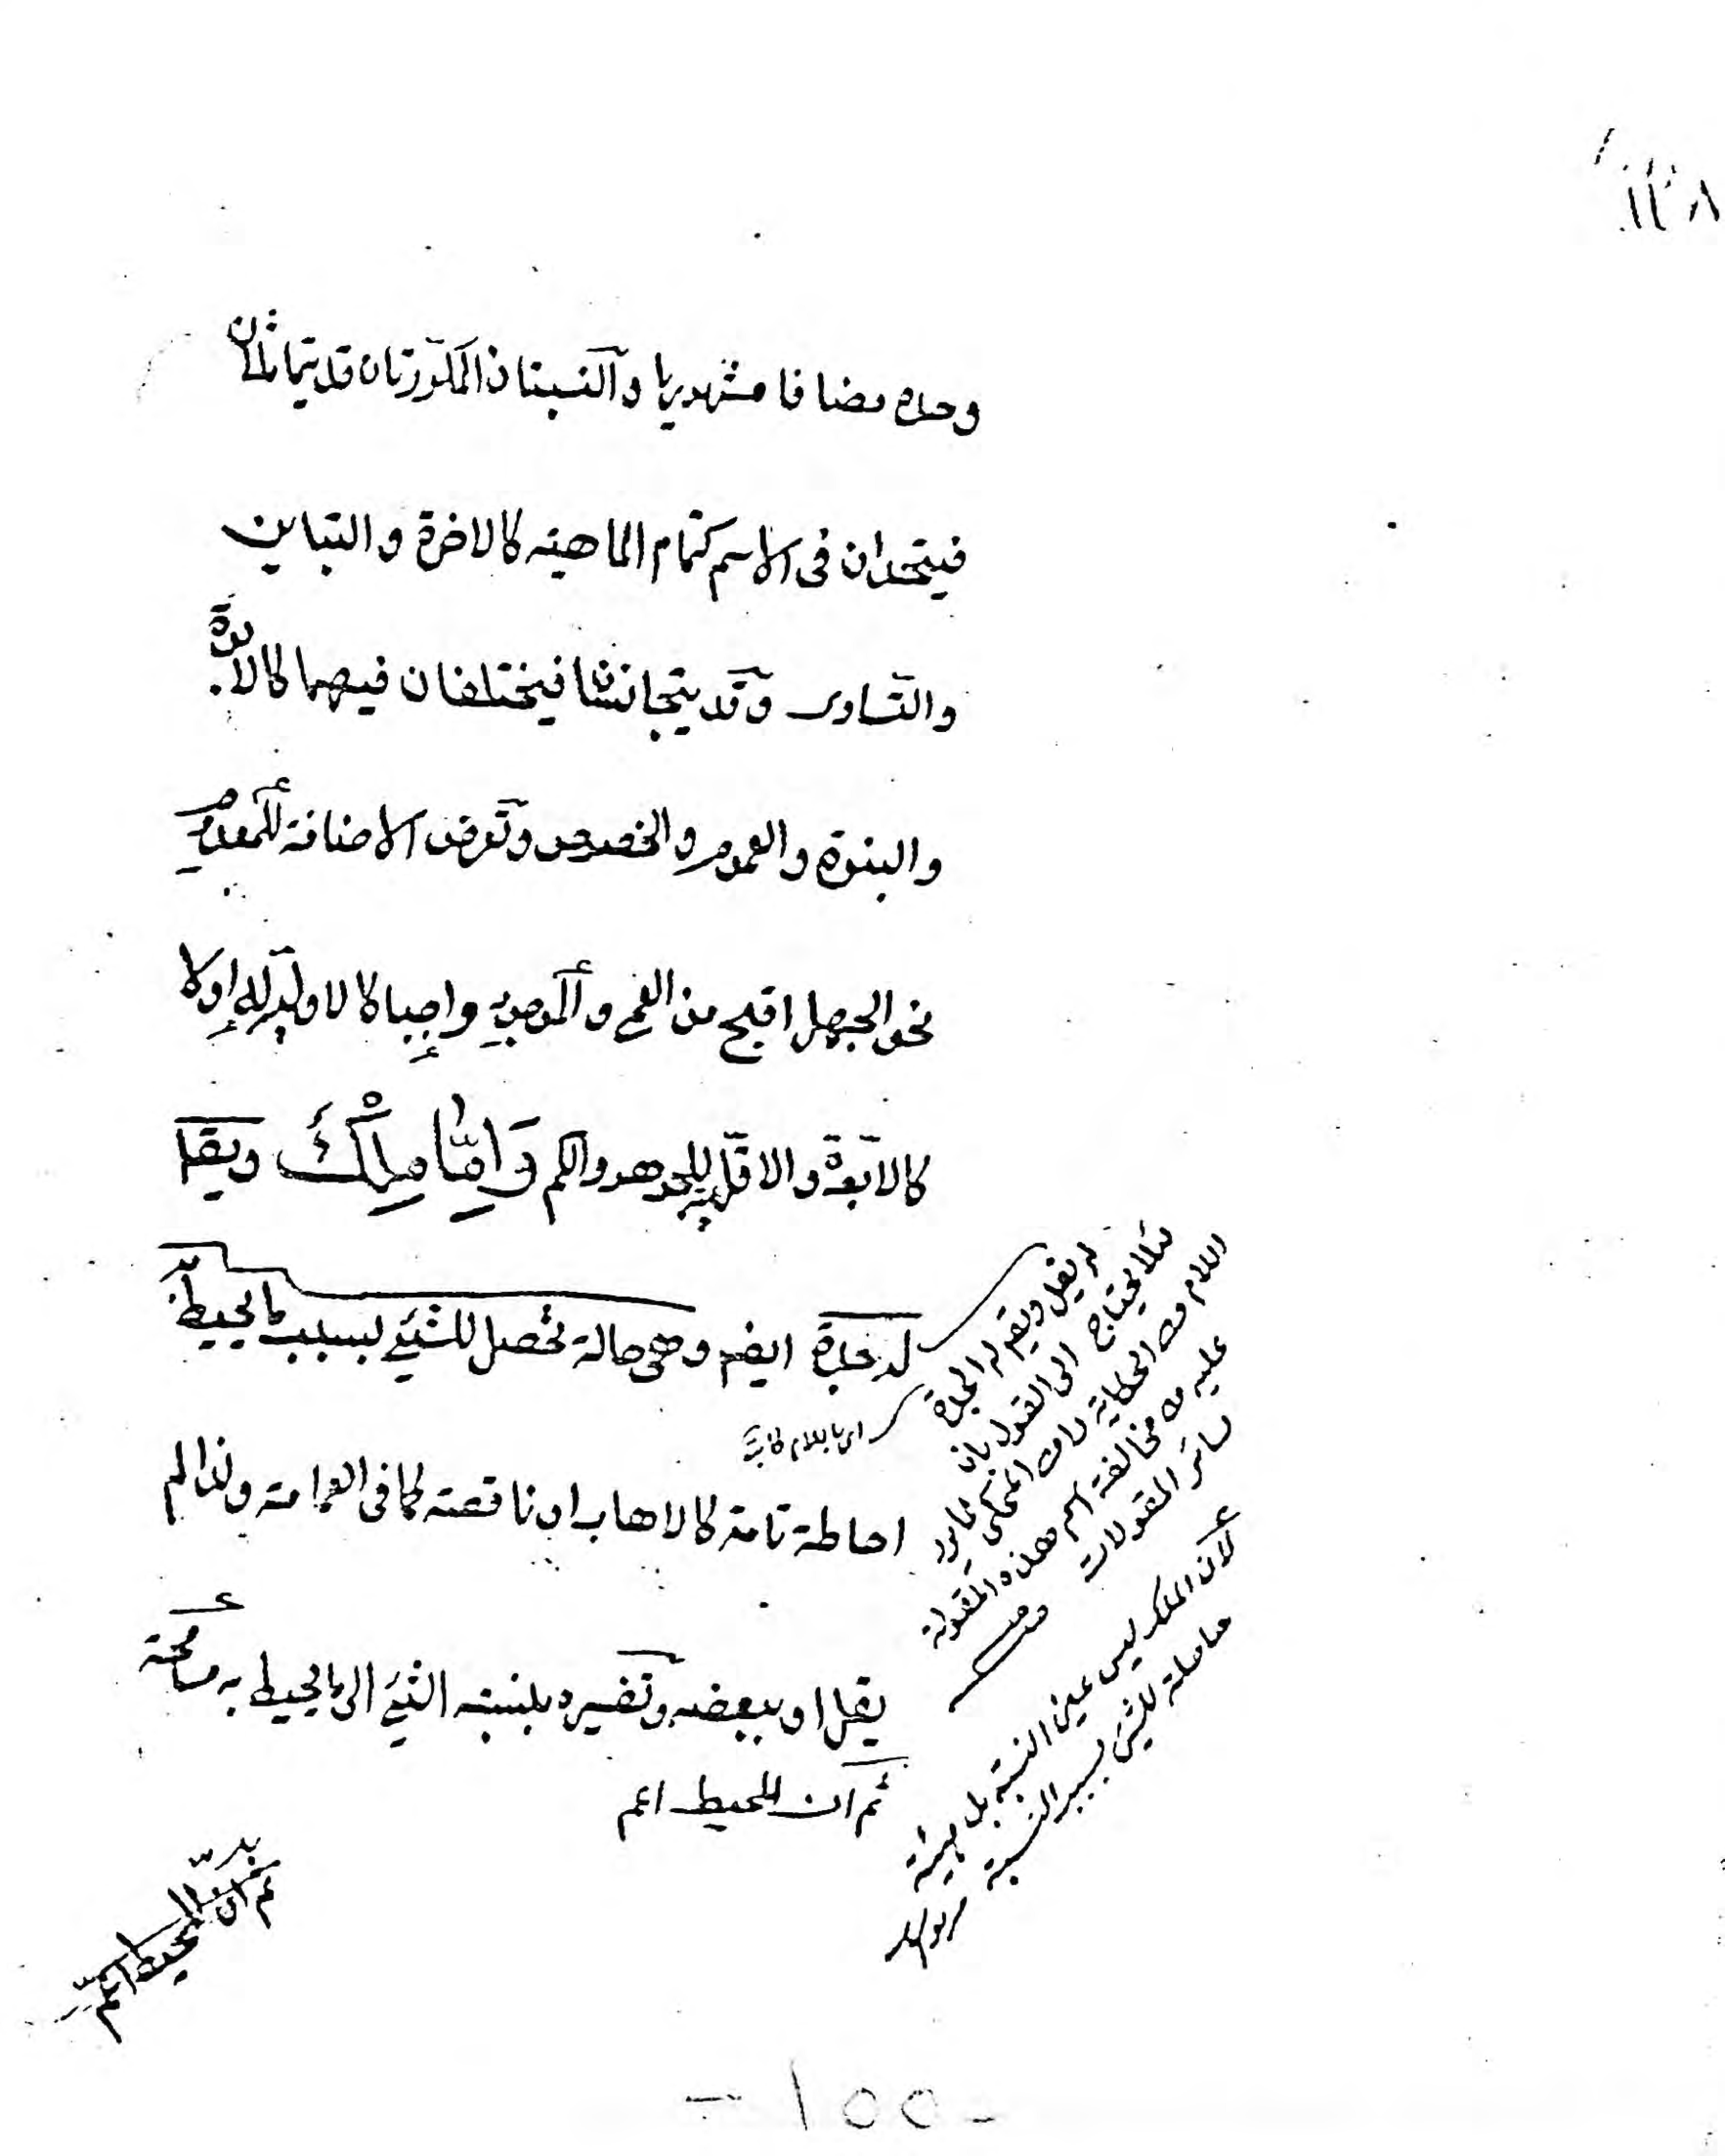 ١٣٨
وحده مضافا مشهوريا والنسبتان المكررتان قد يتماثلان
فيتحدان فى الاسم كتمام الماهيته كالاخوة والتباين
والتساوى وقد يتجانسا فيختلفان فيهما كالابوة
والبنوة والعموم والخصوص وتعرض الاضافة للمعدوم
نحو الجهل اقبح من العمى والموجود واجبا كالاول له اولا
كالابوة والاقلية للجوهر والكم وَامَّا مِلْكٌ ويقا
له جدة ايضا وهى حالة تحصل للشئ بسبب ما يحيط به
احاطة تامة كالاهاب او ناقصته كما فى العمامة ولذا لم
يقل او ببعضه وتفسيره بنسبته الشئ الى ما يحيط به مسامحة
ثم ان المحيط اعم
لم يقل ويقم له الجدة
لئلا يحتاج الى القول بان
اللام من الحكاية لا من المحكى
عليه من مخالفة اسم هذه المقولة
سائر المقولات
لان الملك ليس عين النسبة بل
حاصلة للشئ بسبب النسبة
ثم ان المحيط اعم
- ١٥٥ -